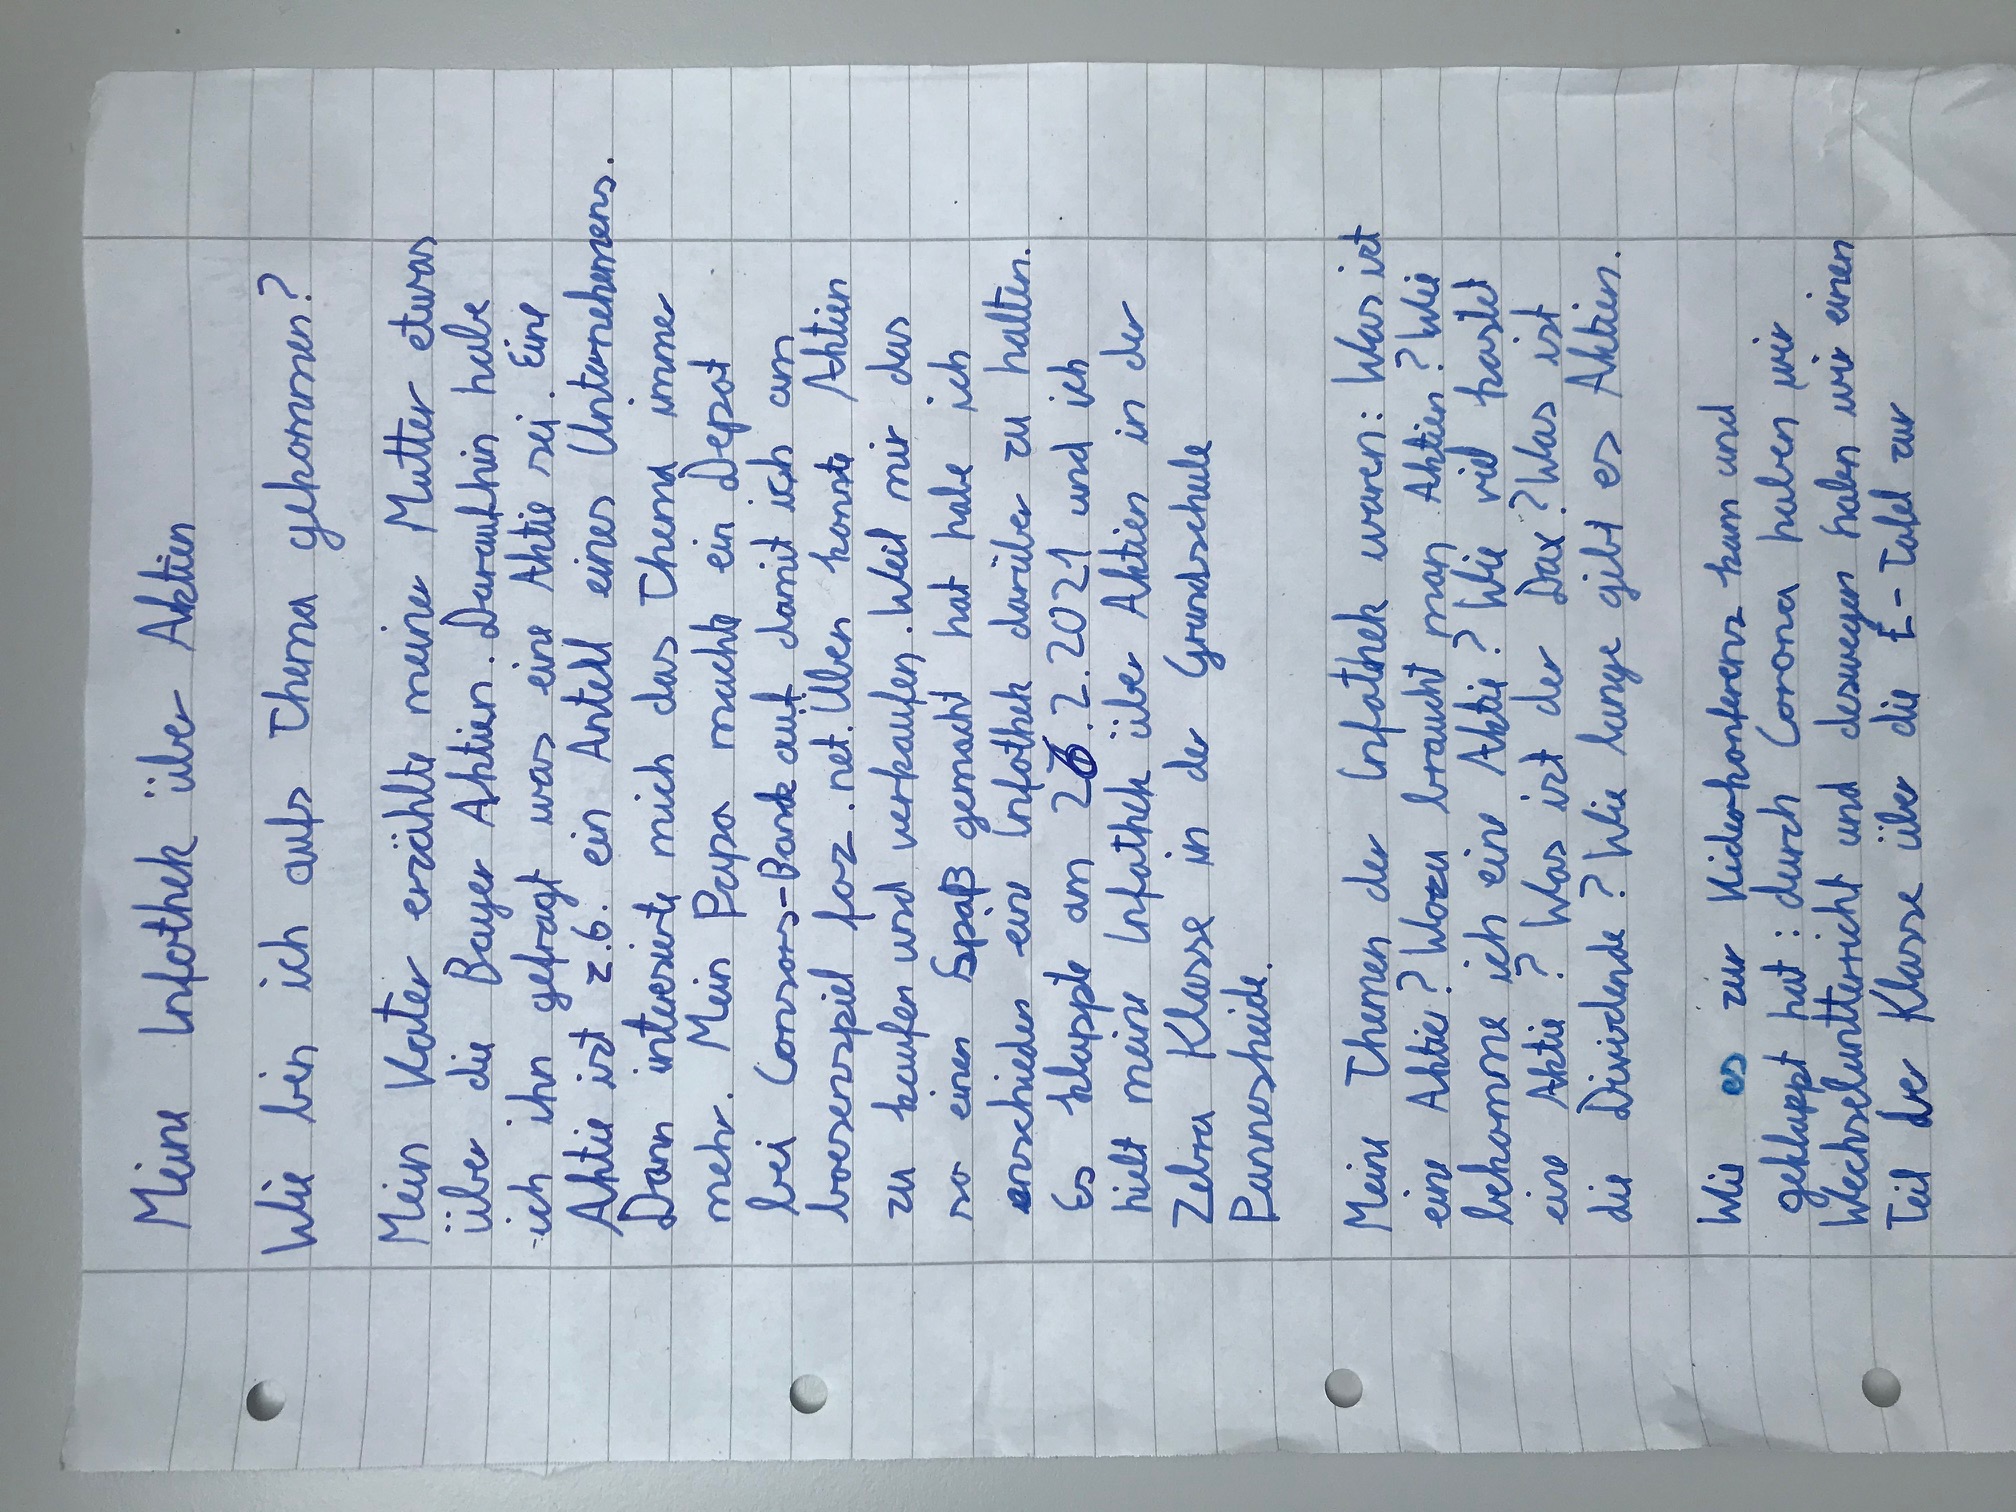 Meine Infothek über Aktien
Wie bin ich aufs Thema gekommen?
Mein Vater erzählte meiner Mutter etwas
über die Bayer Aktien. Daraufhin habe
ich ihn gefragt was eine Aktie sei. Eine
Aktie ist z.b. ein Anteil eines Unternehmens.
Dann interesierte mich das Thema immer
mehr. Mein Papa machte ein Depot
bei Consors-Bank auf damit ich am
boersenspiel faz.net. Üben konnte Aktien
zu kaufen und verkaufen. Weil mir das
so einen Spaß gemacht hat habe ich
enschieden eine Infothek darüber zu halten.
Es klappte am 26.2.2021 und ich
hielt meine Infothek über Aktien in der
Zebra Klasse in der Grundschule
Pannesheide.
Meine Themen der Infothek waren: Was ist
eine Aktie? Wozu braucht man Aktien? Wie
bekomme ich eine Aktie? Wie viel kostet
eine Aktie? Was ist der Dax? Was ist
die Dividende? Wie lange gibt es Aktien.
Wie es zur Videokonferenz kam und
geklappt hat: durch Corona haben wir
Wechselunterricht und deswegen haben wir einen
Teil der Klasse über die E-Tafel zur